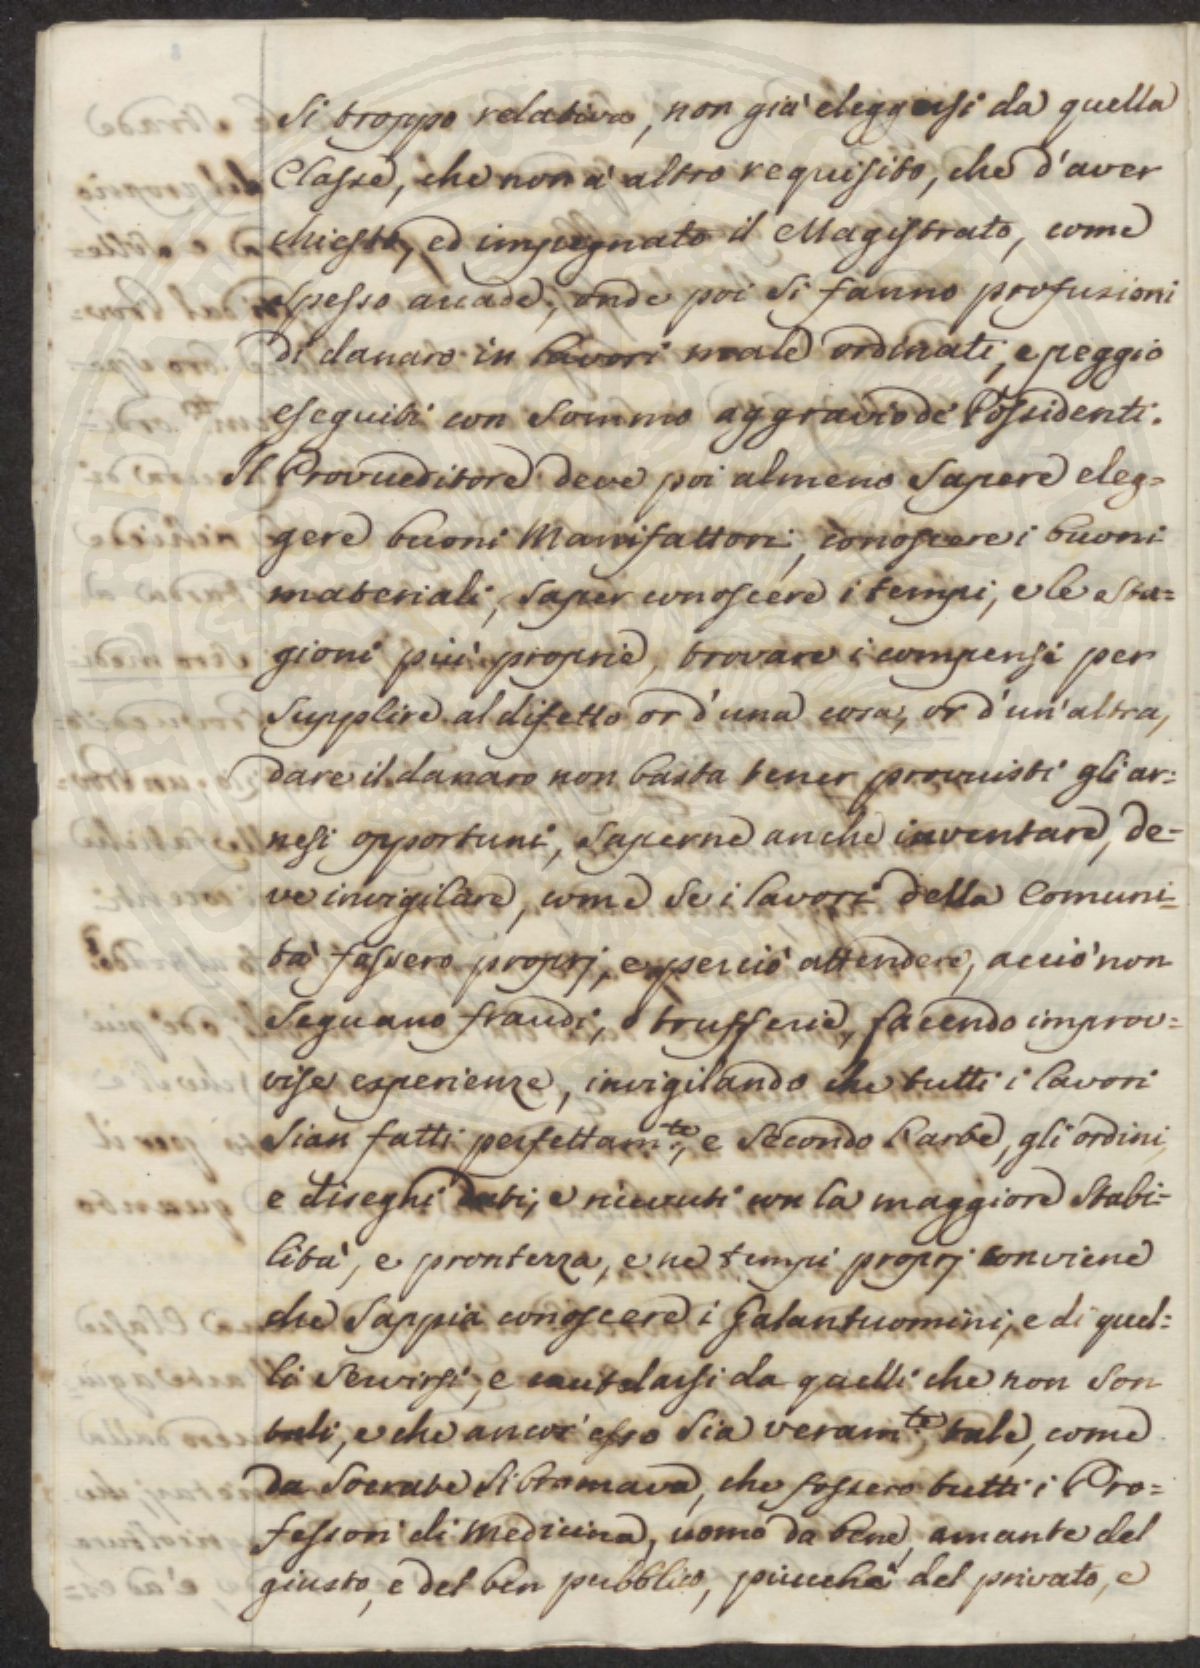 si troppo relativa, non già eleggersi da quella
Classe, che non à altro requisito, che d'aver
chiesto, ed impegnato il Magistrato, come
spesso accade, onde poi si fanno profusioni
di danaro in lavori male ordinati, e peggio
eseguiti con sommo aggravio de' Possidenti.
Il Provveditore deve poi almeno sapere eleg=
gere buoni Manifattori, conoscere i buoni
materiali, saper conoscere i tempi, e le sta=
gioni più proprie, trovare i compensi per
supplire al difetto or d'una cosa, or d'un'altra,
dare il danaro non basta tener provvisti gli ar=
nesi opportuni, saperne anche inventare, de=
ve invigilare, come se i lavori della Comuni=
tà fossero proprj, e perciò attendere, acciò non
seguano fraudi, o trufferie, facendo improv=
vise esperienze, invigilando che tutti i lavori
sian fatti perfettam.te, e secondo l'arte, gli ordini,
e disegni dati, e ricevuti con la maggiore stabi=
lità, e prontezza, e ne' tempi proprj conviene
che sappia conoscere i Galantuomini, e di quel=
li servirsi, e cautelarsi da quelli che non son
tali, e che ancor esso sia veram.te tale, come
da Socrate si bramava, che fossero tutti i Pro=
fessori di Medicina, uomo da bene, amante del
giusto, e del ben pubblico, piucchè del privato, e